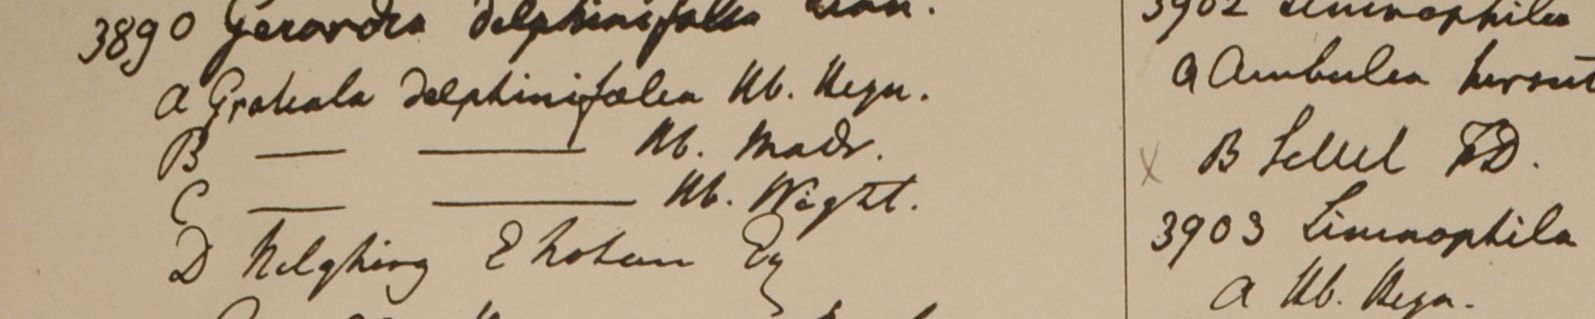 3890 Gerardia delphinifolia Linn.
a Gratiola delphinifolia Hb. Heyn.
B — — Hb. Madr.
C — — Hb. Wight.
D
3902 Limnophila
a Ambulia hirsut
x B Sillet FD.
3903 Limnophila
a Hb. Heyn.